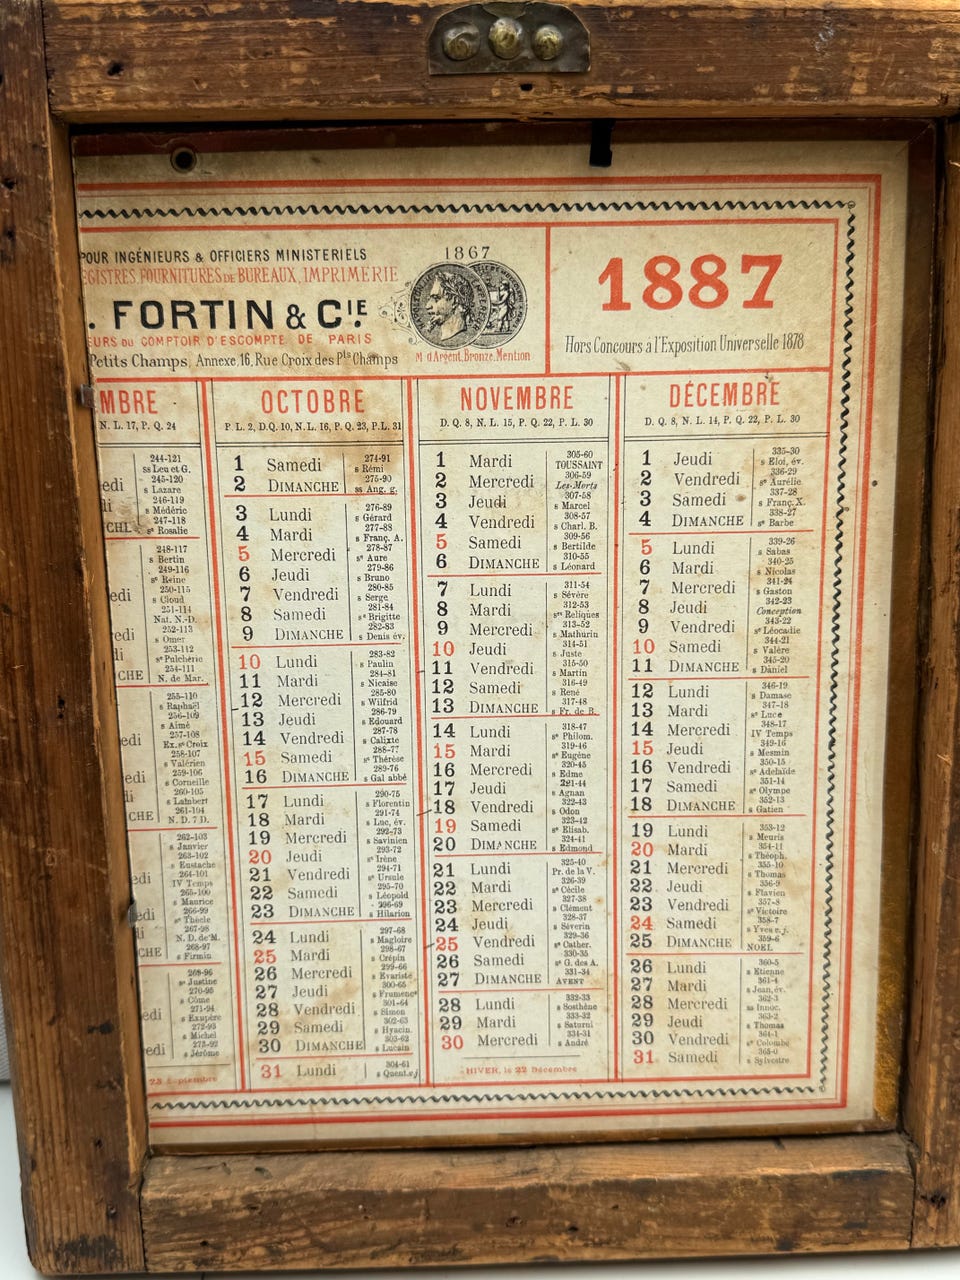 POUR INGÉNIEURS & OFFICIERS MINISTERIELS
REGISTRES, FOURNITURES DE BUREAUX, IMPRIMERIE
. FORTIN & CIE
EURS DU COMPTOIR D'ESCOMPTE DE PARIS
Petits Champs, Annexe, 16, Rue Croix des Pts Champs
1867
M. d'Argent, Bronze, Mention
1887
Hors Concours à l'Exposition Universelle 1878
MBRE
N. L. 17, P. Q. 24
244-121
ss Leu et G.
245-120
s Lazare
246-119
s Médéric
247-118
se Rosalie
248-117
s Bertin
249-116
se Reine
250-115
s Cloud
251-114
Nat. N.-D.
252-113
s Omer
253-112
se Pulchérie
254-111
N. de Mar.
255-110
s Raphaël
256-109
s Aimé
257-108
Ex. se Croix
258-107
s Valérien
259-106
s Corneille
260-105
s Lambert
261-104
N. D. 7 D.
262-103
s Janvier
263-102
s Eustache
264-101
IV Temps
265-100
s Maurice
266-99
se Thècle
267-98
N. D. de M.
268-97
s Firmin
269-96
se Justine
270-95
s Côme
271-94
s Exupère
272-93
s Michel
273-92
s Jérôme
OCTOBRE
P. L. 2, D. Q. 10, N. L. 16, P. Q. 23, P. L. 31
1 Samedi 274-91 s Rémi
2 DIMANCHE 275-90 ss Ang. g.
3 Lundi 276-89 s Gérard
4 Mardi 277-88 s Franç. A.
5 Mercredi 278-87 se Aure
6 Jeudi 279-86 s Bruno
7 Vendredi 280-85 s Serge
8 Samedi 281-84 se Brigitte
9 DIMANCHE 282-83 s Denis év.
10 Lundi 283-82 s Paulin
11 Mardi 284-81 s Nicaise
12 Mercredi 285-80 s Wilfrid
13 Jeudi 286-79 s Edouard
14 Vendredi 287-78 s Calixte
15 Samedi 288-77 se Thérèse
16 DIMANCHE 289-76 s Gal abbé
17 Lundi 290-75 s Florentin
18 Mardi 291-74 s Luc, év.
19 Mercredi 292-73 s Savinien
20 Jeudi 293-72 se Irène
21 Vendredi 294-71 se Ursule
22 Samedi 295-70 s Léopold
23 DIMANCHE 296-69 s Hilarion
24 Lundi 297-68 s Magloire
25 Mardi 298-67 s Crépin
26 Mercredi 299-66 s Evariste
27 Jeudi 300-65 s Frumence
28 Vendredi 301-64 s Simon
29 Samedi 302-63 s Hyacin.
30 DIMANCHE 303-62 s Lucain
31 Lundi 304-61 s Quent. v.j
NOVEMBRE
D. Q. 8, N. L. 15, P. Q. 22, P. L. 30
1 Mardi 305-60 TOUSSAINT
2 Mercredi 306-59 Les Morts
3 Jeudi 307-58 s Marcel
4 Vendredi 308-57 s Charl. B.
5 Samedi 309-56 s Bertilde
6 DIMANCHE 310-55 s Léonard
7 Lundi 311-54 s Sévère
8 Mardi 312-53 stes Reliques
9 Mercredi 313-52 s Mathurin
10 Jeudi 314-51 s Juste
11 Vendredi 315-50 s Martin
12 Samedi 316-49 s René
13 DIMANCHE 317-48 s Fr. de B.
14 Lundi 318-47 se Philom.
15 Mardi 319-46 s Eugène
16 Mercredi 320-45 s Edme
17 Jeudi 321-44 s Agnan
18 Vendredi 322-43 s Odon
19 Samedi 323-42 se Elisab.
20 DIMANCHE 324-41 s Edmond
21 Lundi 325-40 Pr. de la V.
22 Mardi 326-39 se Cécile
23 Mercredi 327-38 s Clément
24 Jeudi 328-37 s Séverin
25 Vendredi 329-36 se Cather.
26 Samedi 330-35 s G. des A.
27 DIMANCHE 331-34 AVENT
28 Lundi 332-33 s Sosthène
29 Mardi 333-32 s Saturni
30 Mercredi 334-31 s André
HIVER, le 22 Décembre
DÉCEMBRE
D. Q. 8, N. L. 14, P. Q. 22, P. L. 30
1 Jeudi 335-30 s Eloi, év.
2 Vendredi 336-29 se Aurélie
3 Samedi 337-28 s Franç. X.
4 DIMANCHE 338-27 se Barbe
5 Lundi 339-26 s Sabas
6 Mardi 340-25 s Nicolas
7 Mercredi 341-24 s Gaston
8 Jeudi 342-23 Conception
9 Vendredi 343-22 se Léocadie
10 Samedi 344-21 s Valère
11 DIMANCHE 345-20 s Daniel
12 Lundi 346-19 s Damase
13 Mardi 347-18 se Luce
14 Mercredi 348-17 IV Temps
15 Jeudi 349-16 s Mesmin
16 Vendredi 350-15 se Adélaïde
17 Samedi 351-14 se Olympe
18 DIMANCHE 352-13 s Gatien
19 Lundi 353-12 s Meuris
20 Mardi 354-11 s Théoph.
21 Mercredi 355-10 s Thomas
22 Jeudi 356-9 s Flavien
23 Vendredi 357-8 se Victoire
24 Samedi 358-7 s Yves v.j.
25 DIMANCHE 359-6 NOEL
26 Lundi 360-5 s Etienne
27 Mardi 361-4 s Jean, év.
28 Mercredi 362-3 ss Innoc.
29 Jeudi 363-2 s Thomas
30 Vendredi 364-1 se Colombe
31 Samedi 365-0 s Sylvestre